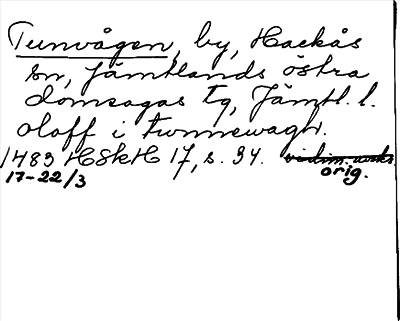 Tunvågen, by, Hackås
sn, Jämtlands östra
domsagas tg, Jämtl. l.
oloff i twnnewagh.
1483 HSkH 17, s. 34. vidim. avskr.
17-22/3 orig.